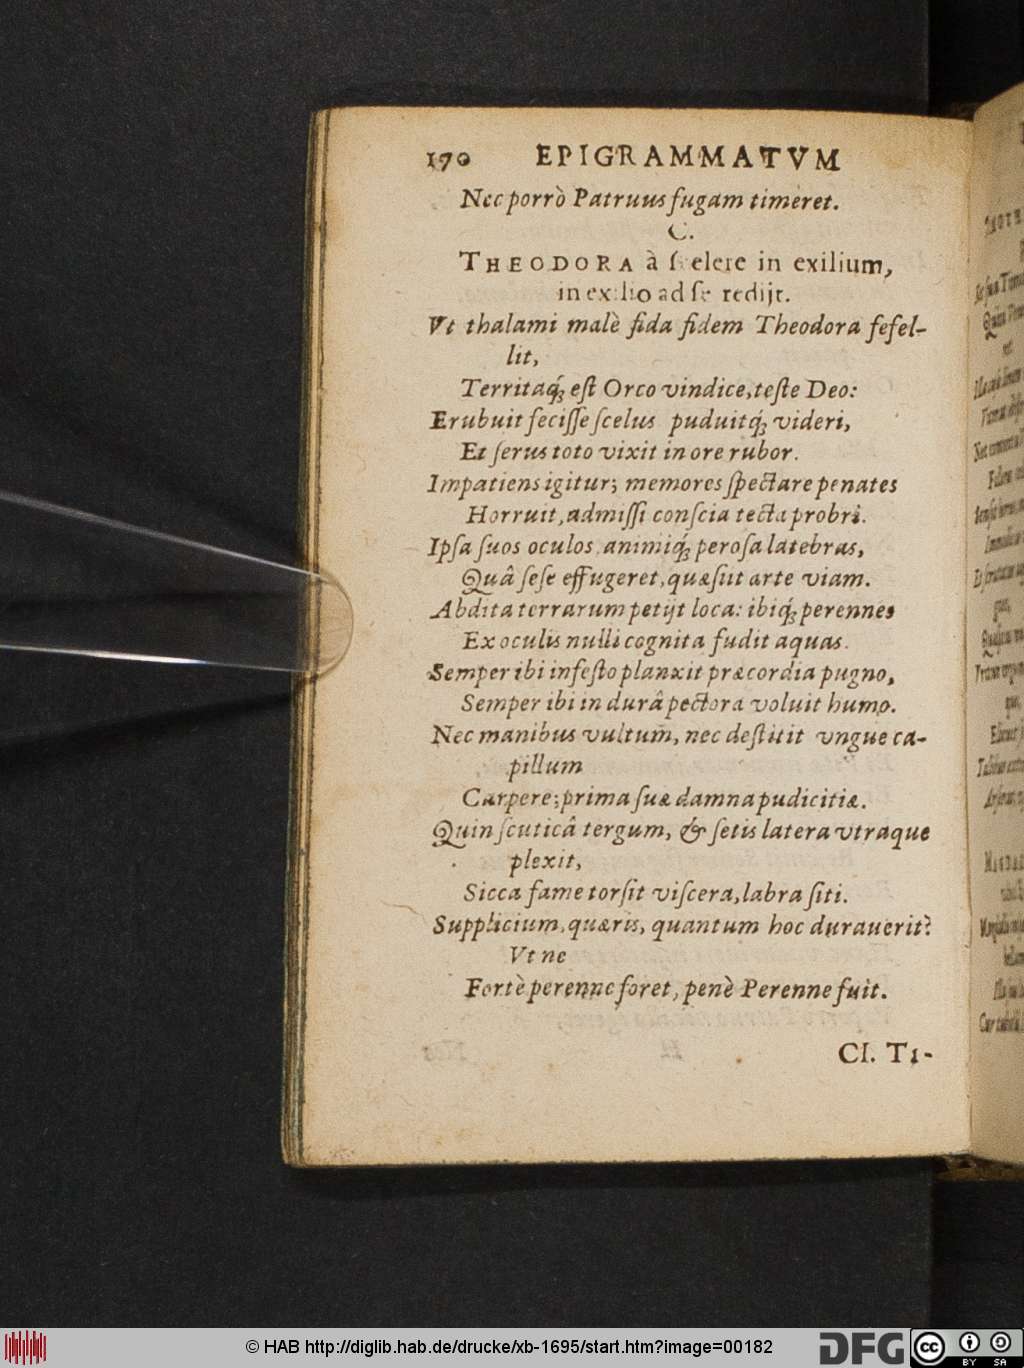 170 EPIGRAMMATVM
Nec porrò Patruus fugam timeret.
C.
THEODORA à ſcelere in exilium,
in exilio ad ſe redijt.
Vt thalami malè fida fidem Theodora fefel-
lit,
Territaq́; eſt Orco vindice, teſte Deo:
Erubuit feciſſe ſcelus puduitq́; videri,
Et ſerus toto vixit in ore rubor.
Impatiens igitur; memores ſpectare penates
Horruit, admiſſi conſcia tecta probri.
Ipſa ſuos oculos, animiq́; peroſa latebras,
Quâ ſeſe effugeret, quæſiit arte viam.
Abdita terrarum petijt loca: ibiq́; perennes
Ex oculis nulli cognita fudit aquas.
Semper ibi infeſto planxit præcordia pugno,
Semper ibi in durâ pectora voluit humo.
Nec manibus vultum, nec deſtitit vngue ca-
pillum
Carpere; prima ſuæ damna pudicitiæ.
Quin ſcuticâ tergum, & ſetis latera vtraque
plexit,
Sicca fame torſit viſcera, labra ſiti.
Supplicium, quæris, quantum hoc durauerit?
Vt ne
Fortè perenne foret, penè Perenne fuit.
CI. TI-
© HAB http://diglib.hab.de/drucke/xb-1695/start.htm?image=00182
DFG
cc BY SA